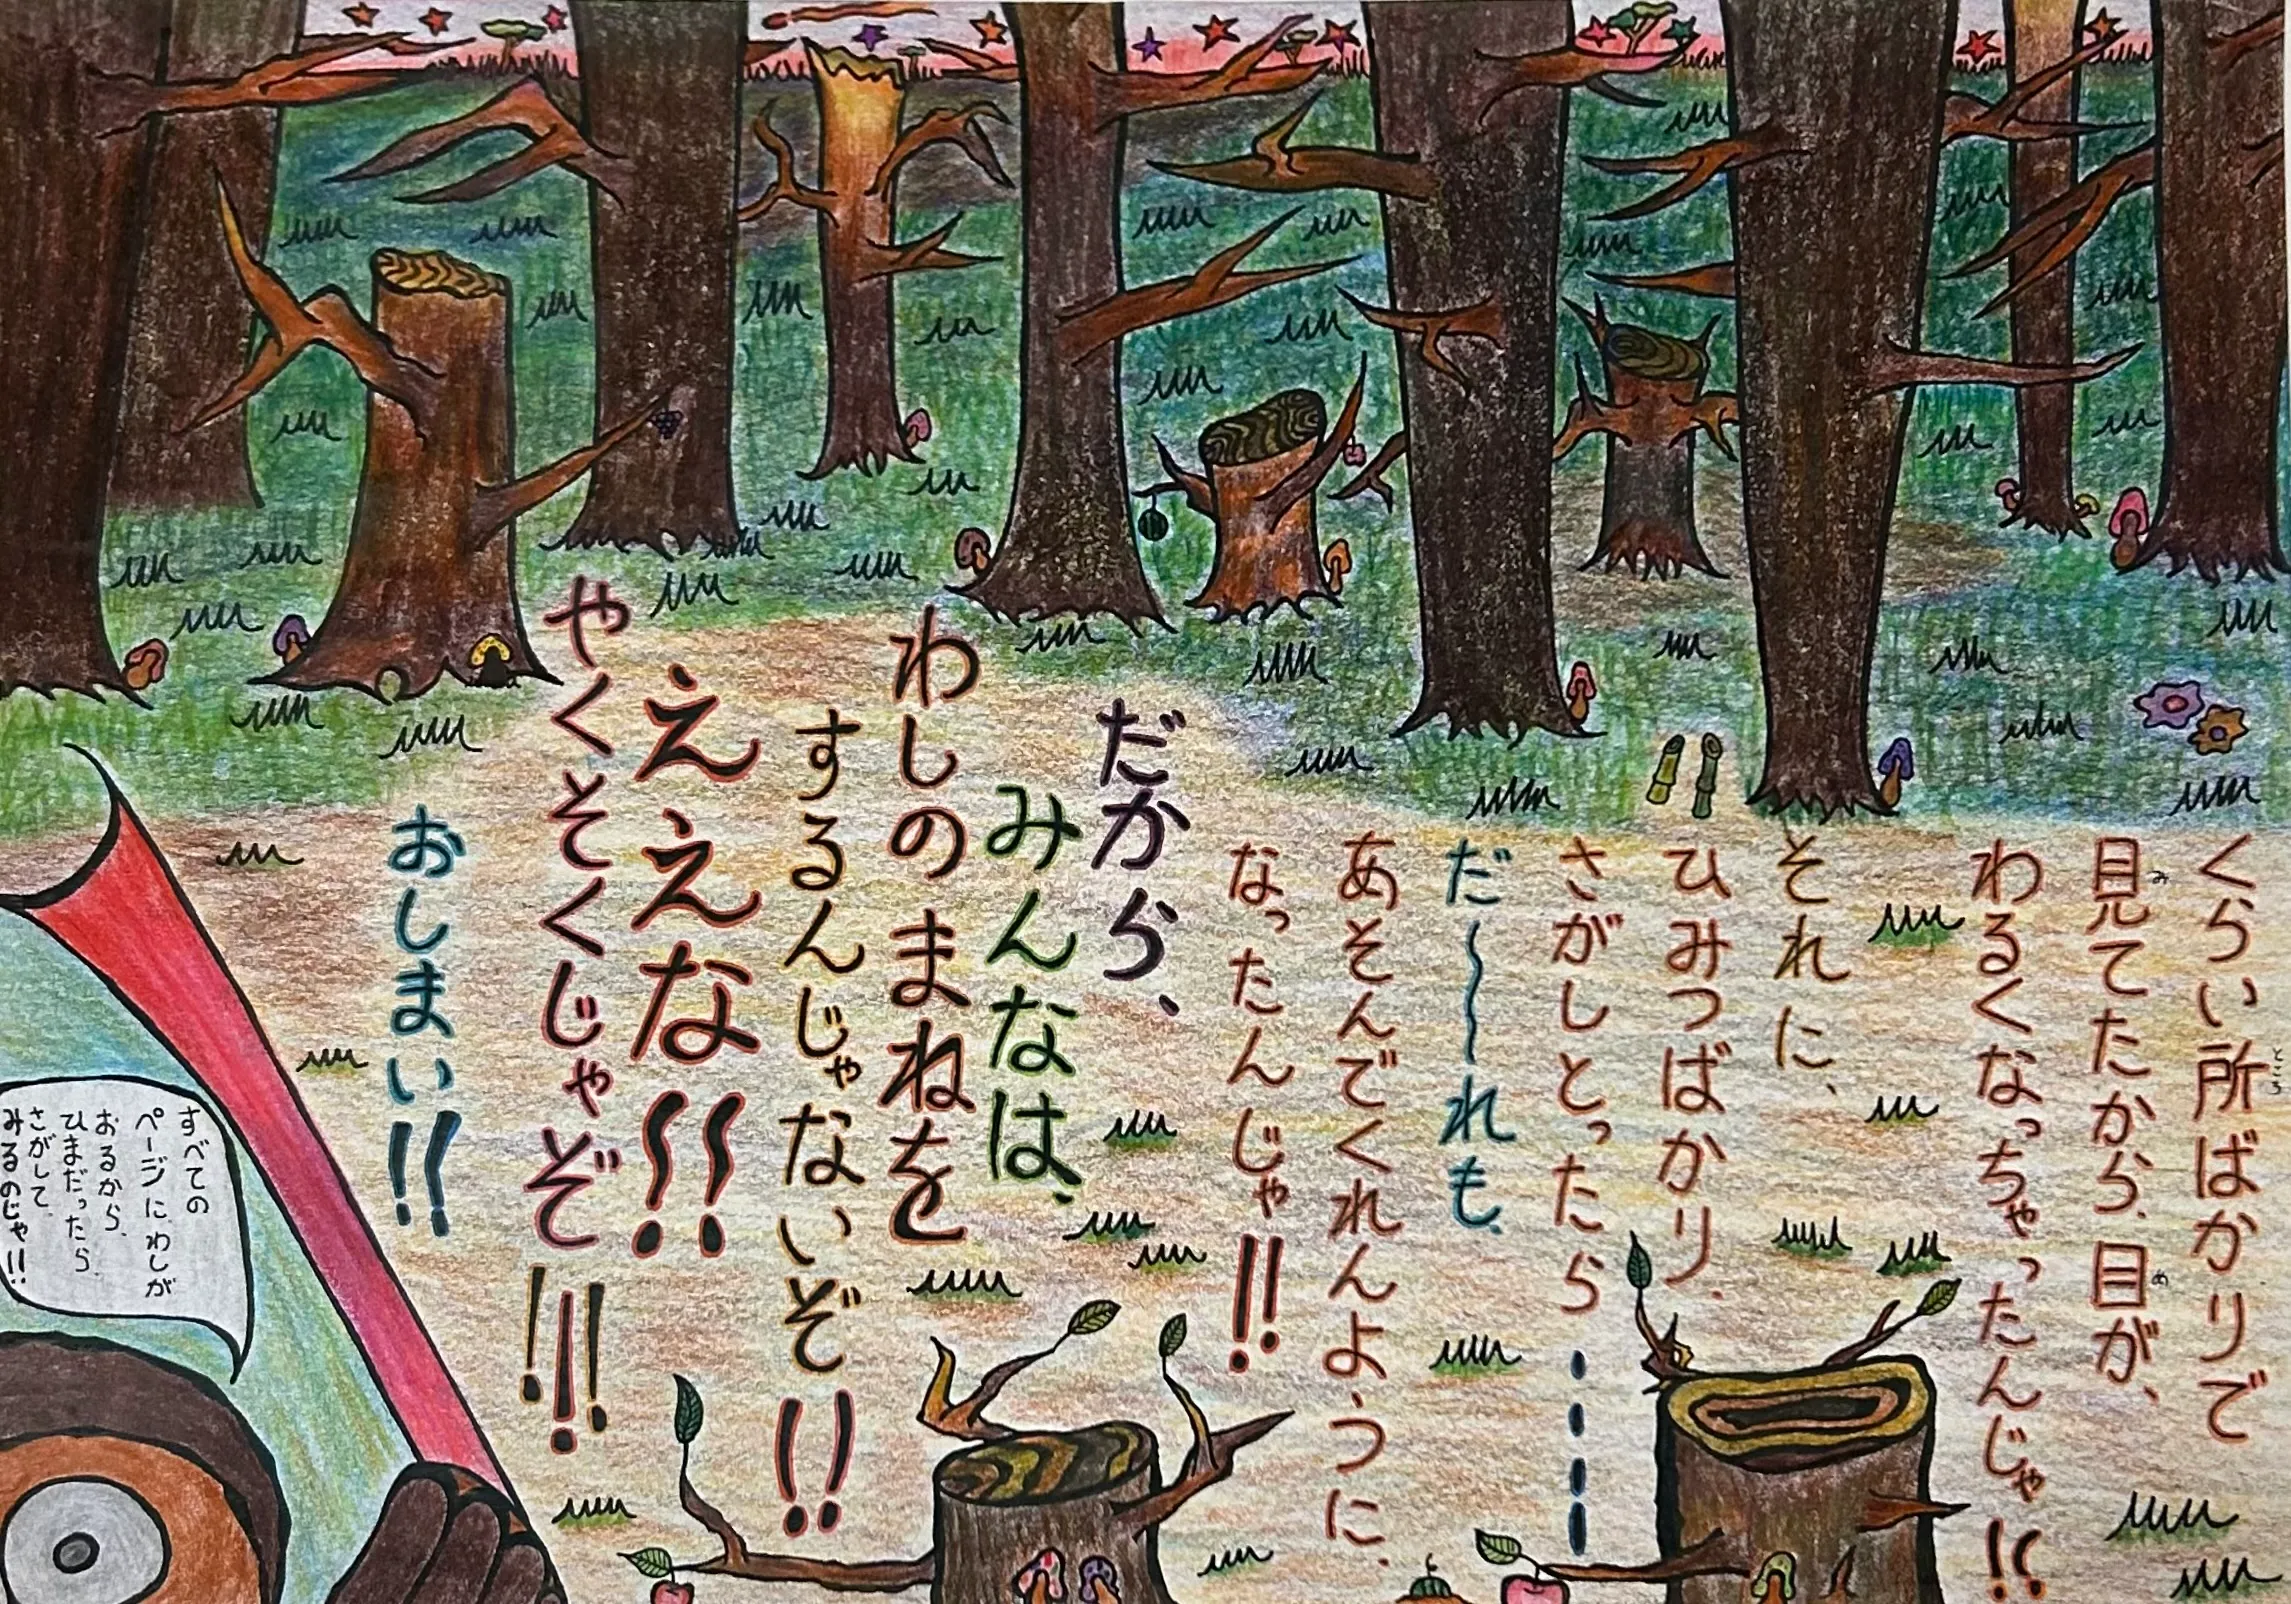 くらい所ばかりで
ところ
見てたから、目が、
み
め
わるくなっちゃったんじゃ!!
それに、
ひみつばかり、
さがしとったら
だ〜〜れも、
あそんでくれんように、
なったんじゃ!!
だから、
みんなは、
わしのまねを
するんじゃないぞ!!
ええな!!
やくそくじゃぞ!!!
おしまい!!
すべての
ページにわしが
おるから、
ひまだったら、
さがして、
みるのじゃ!!